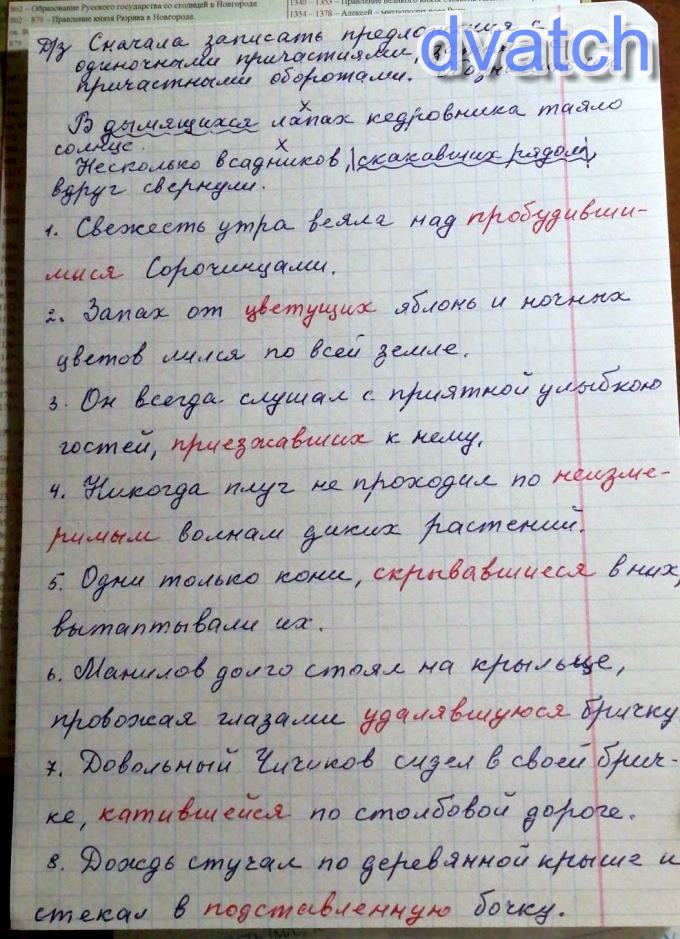 862 – Образование Русского государства со столицей в Новгороде
862 - 879 – Правление князя Рюрика в Новгороде
879
dvatch
Д/з Сначала записать предложения с
одиночными причастиями,
причастными оборотами.
В дымящихся лапах кедровника таяло
солнце.
Несколько всадников, скакавших рядом,
вдруг свернули.
1. Свежесть утра веяла над пробудивши-
мися Сорочинцами.
2. Запах от цветущих яблонь и ночных
цветов лился по всей земле.
3. Он всегда слушал с приятной улыбкою
гостей, приезжавших к нему.
4. Никогда плуг не проходил по неизме-
римым волнам диких растений.
5. Одни только кони, скрывавшиеся в них,
вытаптывали их.
6. Манилов долго стоял на крыльце,
провожая глазами удалявшуюся бричку
7. Довольный Чичиков сидел в своей брич-
ке, катившейся по столбовой дороге.
8. Дождь стучал по деревянной крыше и
стекал в подставленную бочку.